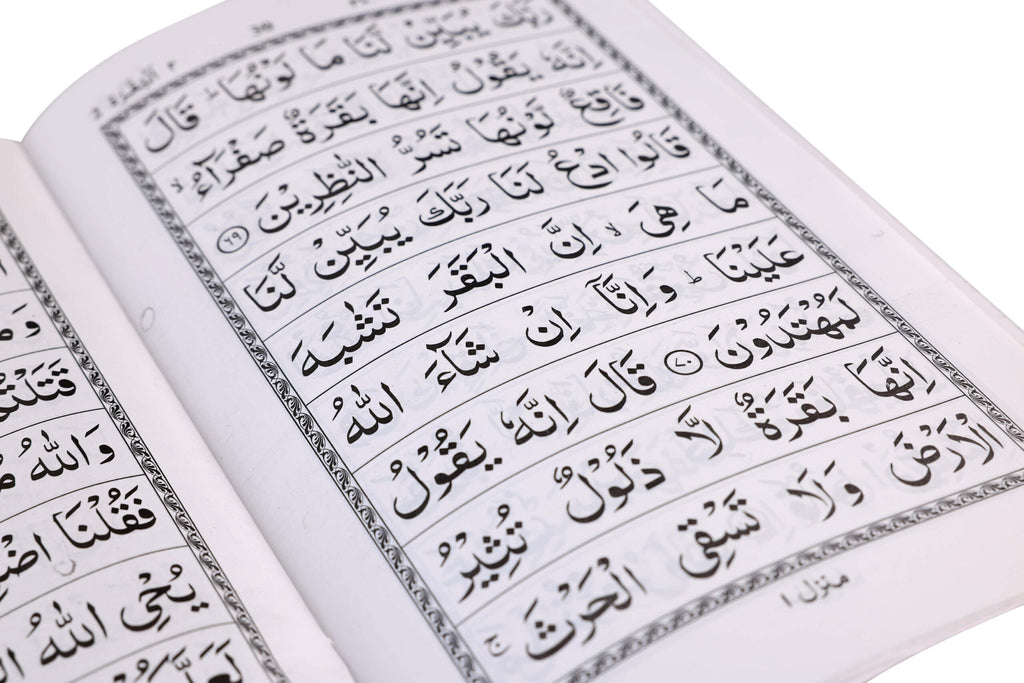 البقرة ٢
رَبَّكَ يُبَيِّنْ لَّنَا مَا لَوْنُهَا ؕ قَالَ
اِنَّهٗ يَقُوْلُ اِنَّهَا بَقَرَةٌ صَفْرَآءُ ۙ
فَاقِعٌ لَّوْنُهَا تَسُرُّ النّٰظِرِيْنَ ۝٦٩
قَالُوا ادْعُ لَنَا رَبَّكَ يُبَيِّنْ لَّنَا
مَا هِىَ ۙ اِنَّ الْبَقَرَ تَشٰبَهَ
عَلَيْنَا ؕ وَاِنَّاۤ اِنْ شَآءَ اللّٰهُ
لَمُهْتَدُوْنَ ۝٧٠ قَالَ اِنَّهٗ يَقُوْلُ
اِنَّهَا بَقَرَةٌ لَّا ذَلُوْلٌ تُثِيْرُ
الْاَرْضَ وَلَا تَسْقِى الْحَرْثَ ۚ
منزل ١
وَاللّٰهُ
فَقُلْنَا
يُحْىِ اللّٰهُ